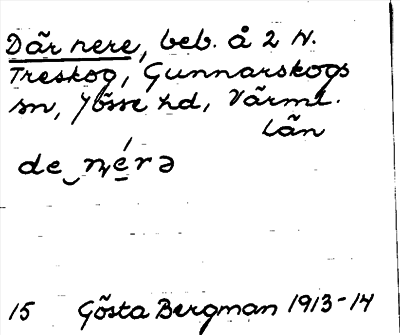 Där nere, beb. å 2 N.
Treskog, Gunnarskogs
sn, Jösse hd, Värml.
län
de‿nérə
15 Gösta Bergman 1913-14